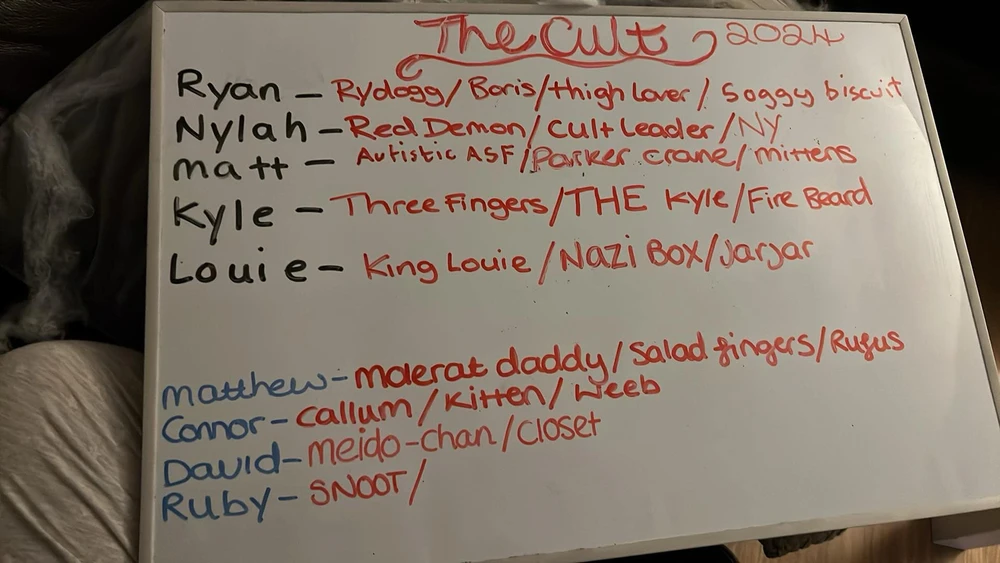 The Cult 2024
Ryan - Rydogg/Boris/thigh lover/Soggy biscuit
Nylah - Red Demon/Cult Leader/NY
matt - Autistic ASF/Parker crane/mittens
Kyle - Three Fingers/THE Kyle/Fire Beard
Louie - King Louie/Nazi Box/Jarjar
matthew - molerat daddy/Salad fingers/Rufus
Connor - Callum/Kitten/Weeb
David - meido-chan/Closet
Ruby - SNOOT/